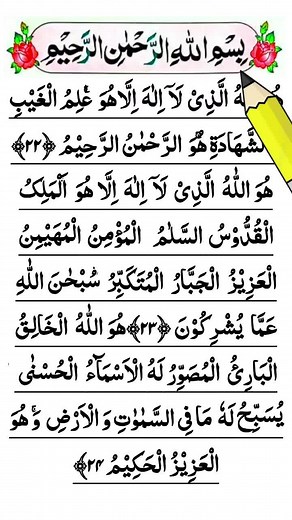 بِسْمِ اللهِ الرَّحْمٰنِ الرَّحِيْمِ
اللهُ الَّذِىْ لَآ اِلٰهَ اِلَّا هُوَ عٰلِمُ الْغَيْبِ
الشَّهَادَةِ هُوَ الرَّحْمٰنُ الرَّحِيْمُ ﴿۲۲﴾
هُوَ اللهُ الَّذِىْ لَآ اِلٰهَ اِلَّا هُوَ اَلْمَلِكُ
الْقُدُّوْسُ السَّلٰمُ الْمُؤْمِنُ الْمُهَيْمِنُ
الْعَزِيْزُ الْجَبَّارُ الْمُتَكَبِّرُ سُبْحٰنَ اللهِ
عَمَّا يُشْرِكُوْنَ ﴿۲۳﴾ هُوَ اللهُ الْخَالِقُ
الْبَارِئُ الْمُصَوِّرُ لَهُ الْاَسْمَآءُ الْحُسْنٰى
يُسَبِّحُ لَهٗ مَا فِى السَّمٰوٰتِ وَ الْاَرْضِ وَ هُوَ
الْعَزِيْزُ الْحَكِيْمُ ﴿۲۴﴾